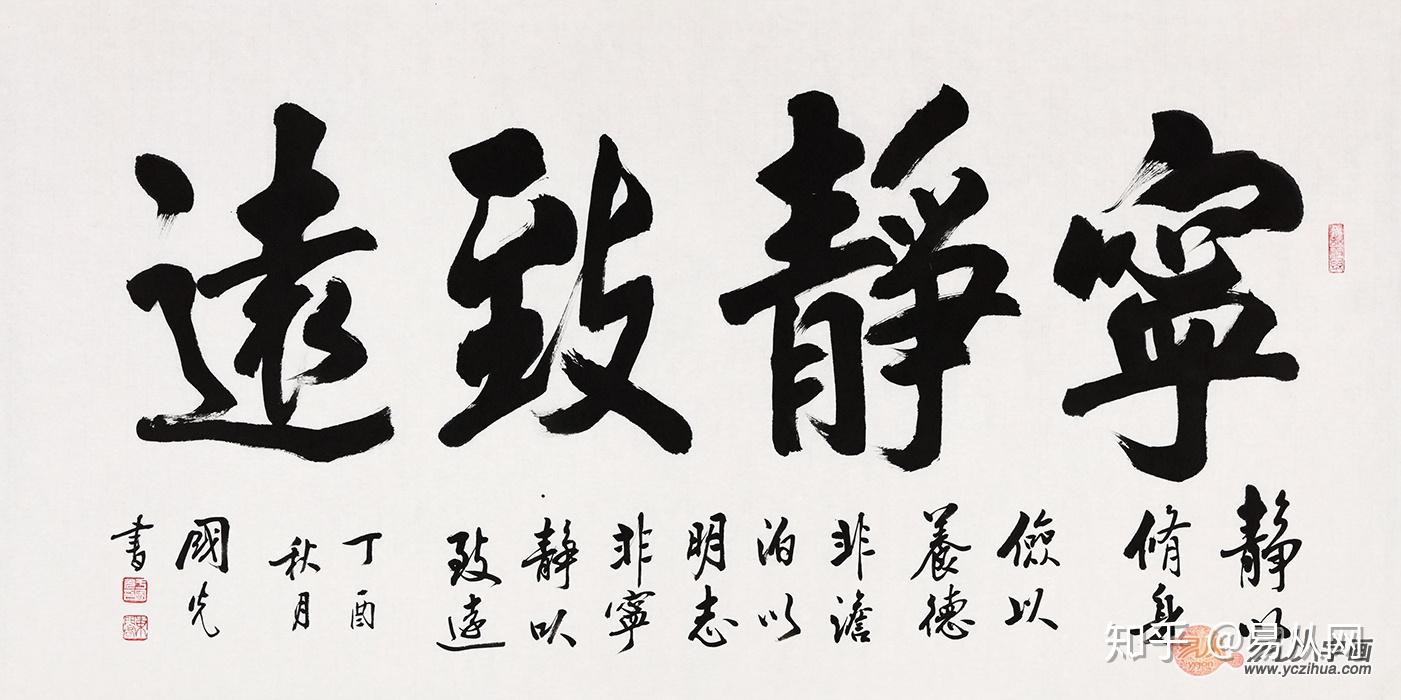 寧靜致遠
靜以
脩身
儉以
養德
非澹
泊以
明志
非寧
靜以
致遠
丁酉
秋月
國光
書
知乎 @易从网
易从字画
www.yczihua.com